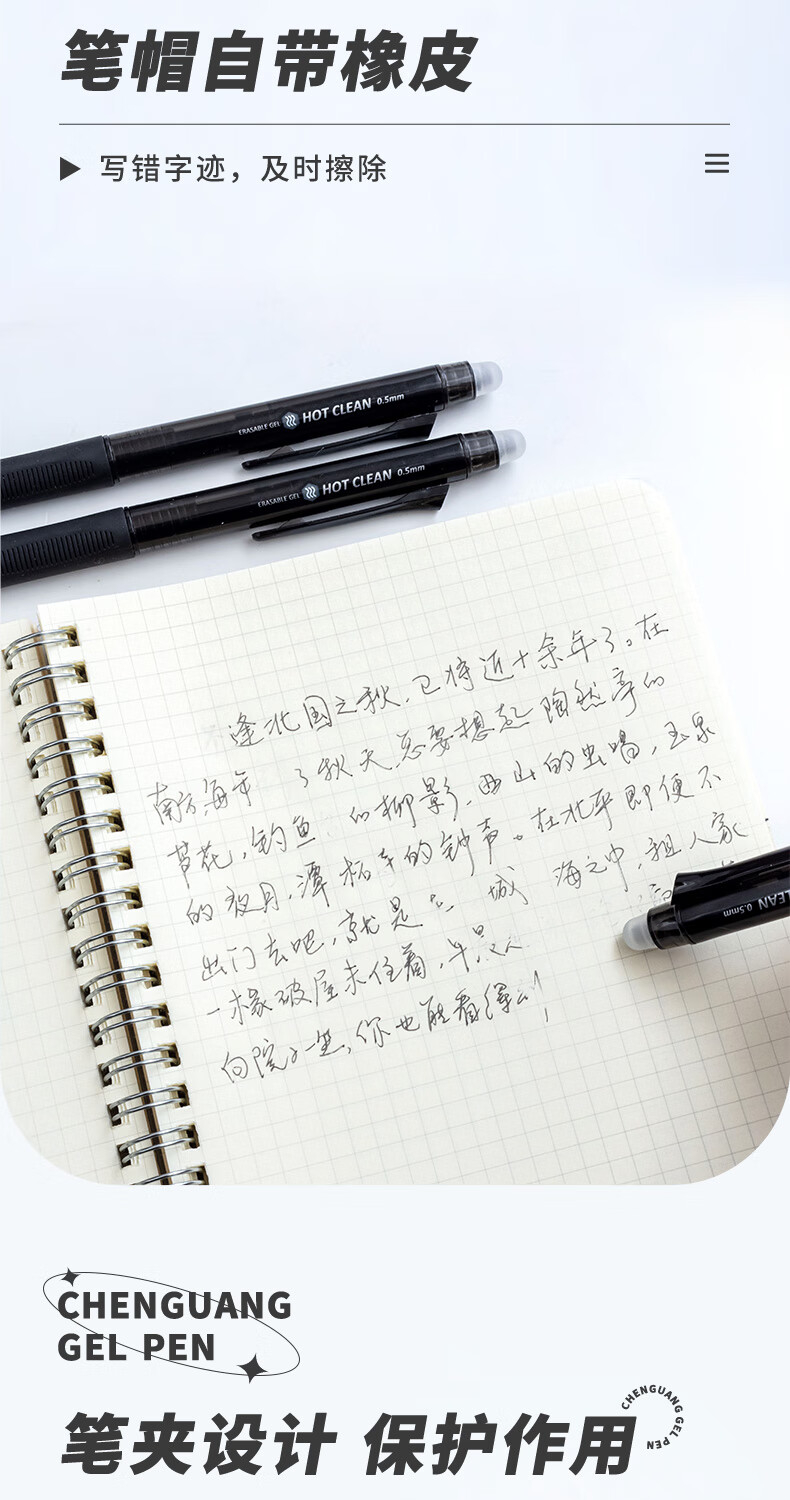 笔帽自带橡皮
写错字迹，及时擦除
ERASABLE GEL HOT CLEAN 0.5mm
ERASABLE GEL HOT CLEAN 0.5mm
逢北国之秋，已将近十余年了。在
南方每年 了秋天，总要想起陶然亭的
芦花，钓鱼 的柳影，西山的虫唱，玉泉
的夜月，潭柘寺的钟声。在北平即便不
出门去吧，就是 城 海之中，租人家
一椽破屋来住着，早晨
向院子一坐，你也能看得到
CLEAN 0.5mm
CHENGUANG
GEL PEN
笔夹设计 保护作用
CHENGUANG GEL PEN